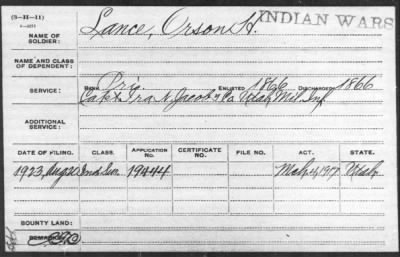 (3-H-11)
Lance, Orson H. INDIAN WARS
NAME OF
SOLDIER:
NAME AND CLASS
OF DEPENDENT:
SERVICE: RANK Priv. ENLISTED 1866 DISCHARGED 1866
Capt Ira N. Jacobs Co Utah Mil. Inf
ADDITIONAL
SERVICE:
DATE OF FILING. CLASS. APPLICATION NO. CERTIFICATE NO. FILE NO. ACT. STATE.
1923, Aug 20 Ind. Sur. 19444 Mch 4, 1917 Utah
BOUNTY LAND:
REMARKS: